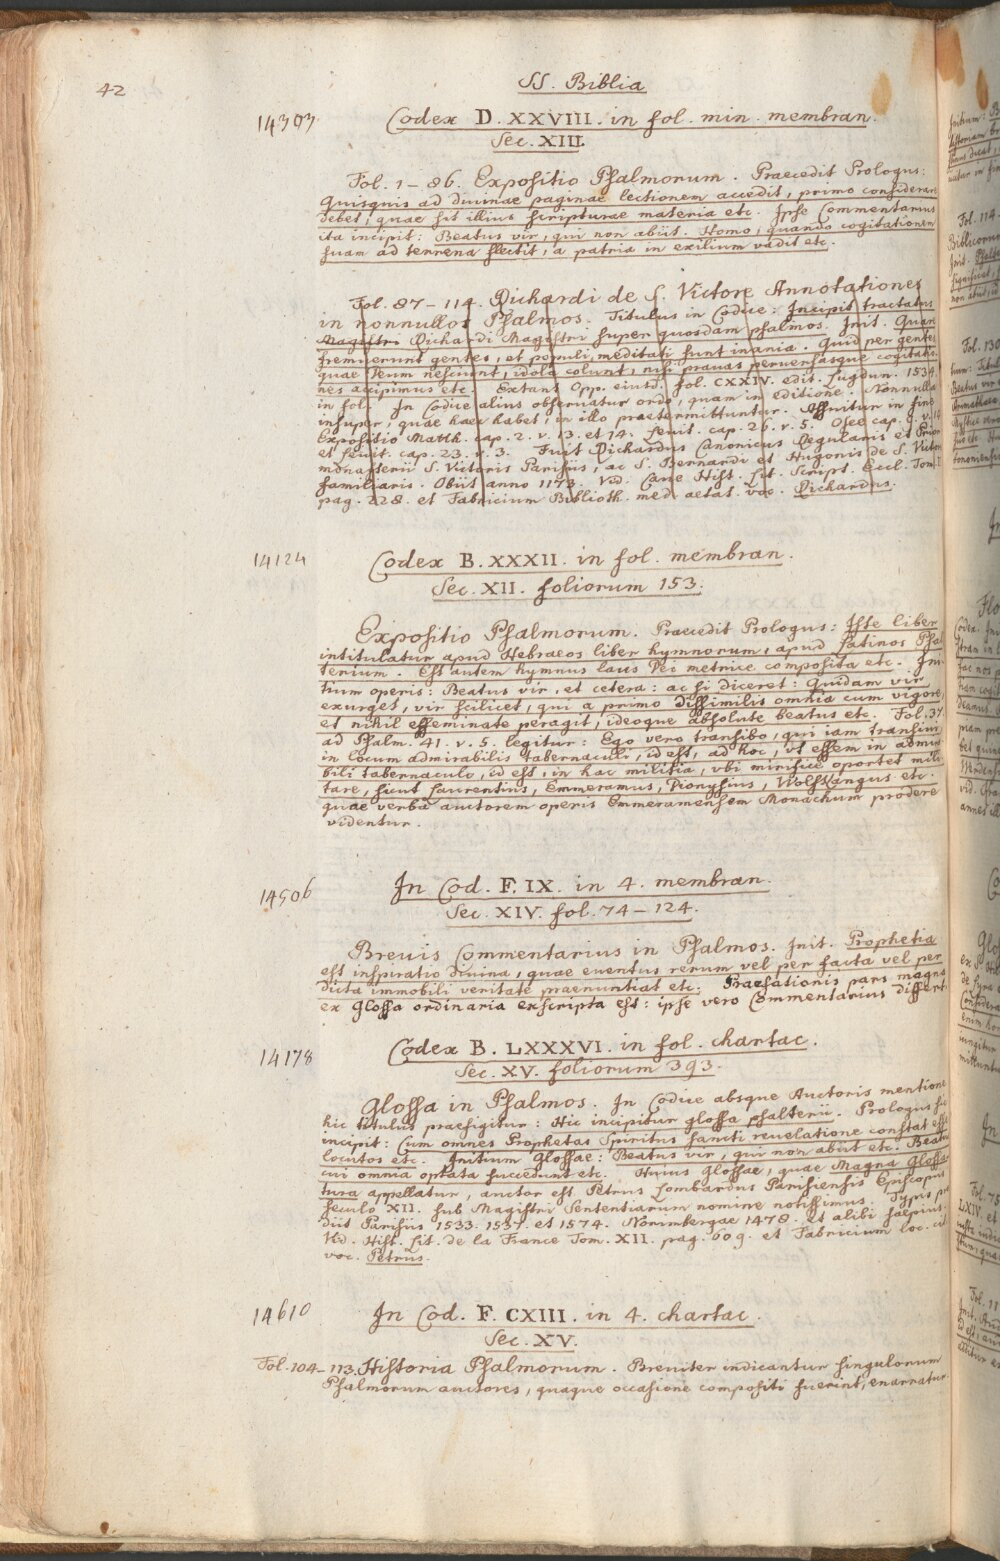 42
SS. Biblia
14303
Codex D. XXVIII. in fol. min. membran.
Sec. XIII.
Fol. 1-86. Expositio Psalmorum. Praecedit Prologus:
Quisquis ad divinae paginae lectionem accedit, primo considerare
debet, quae sit illius scripturae materia etc. Ipse Commentarius
ita incipit: Beatus vir, qui non abiit. Homo, quando cogitationem
suam ad terrena flectit, a patria in exilium vadit etc.
Fol. 87-114. Richardi de S. Victore Annotationes
in nonnullos Psalmos. Titulus in Codice: Incipit tractatus
Magistri Richardi Magistri super quosdam psalmos. Init. Quare
fremuerunt gentes, et populi meditati sunt inania. Quid per gentes
quae Deum nesciunt, idola colunt, nisi prauas peruersasque cogitatio
nes accipimus etc. Extant Opp. eiusd. fol. CXXIV. edit. Lugdun. 1534
in fol. In Codice alius obseruatur ordo, quam in editione. Nonnulla
insuper, quae haec habet, in illo praetermittuntur. Affuitur in fine
Expositio Matth. cap. 2. v. 13. et 14. Leuit. cap. 26. v. 5. Osee cap. 9. v. 14
et Leuit. cap. 23. v. 3. Fuit Richardus Canonicus Regularis et Prior
monasterii S. Victoris Parisiis, ac S. Bernardi et Hugonis de S. Victore
familiaris. Obiit anno 1173. Vid. Cave Hist. Lit. Script. Eccl. Tom. I
pag. 228. et Fabricium Biblioth. med. aetat. voc. Richardus.
14124
Codex B. XXXII. in fol. membran.
Sec. XII. foliorum 153.
Expositio Psalmorum. Praecedit Prologus: Iste liber
intitulatur apud Hebraeos liber hymnorum, apud Latinos Psal
terium. Est autem hymnus laus Dei metrice composita etc. Ini
tium operis: Beatus vir, et cetera: ac si diceret: Quidam vir
exurget, vir scilicet, qui a primo dissimilis omnia cum vigore
et nihil effeminate peragit, ideoque absolute beatus etc. Fol. 37
ad Psalm. 41. v. 5. legitur: Ego vero transibo, qui iam transiui
in locum admirabilis tabernaculi, id est, ad hoc, vt essem in admira
bili tabernaculo, id est, in hac militia, vbi mirifice oportet mili
tare, sicut Laurentius, Emmeramus, Dionysius, Wolfkangus etc.
quae verba auctorem operis Emmeramensem Monachum prodere
videntur.
14506
In Cod. F. IX. in 4. membran.
Sec. XIV. fol. 74-124.
Breuis Commentarius in Psalmos. Init. Prophetia
est inspiratio diuina, quae euentus rerum vel per facta vel per
dicta immobili veritate praenuntiat etc. Praefationis pars magna
ex Glossa ordinaria exscripta est: ipse vero Commentarius differt
14178
Codex B. LXXXVI. in fol. chartac.
Sec. XV. foliorum 393.
Glossa in Psalmos. In Codice absque Auctoris mentione
hic titulus praefigitur: Hic incipitur glossa psalterii. Prologus sic
incipit: Cum omnes Prophetas Spiritus sancti reuelatione constat esse
locutos etc. Initium Glossae: Beatus vir, qui non abiit etc. Beatus
cui omnia optata succedunt etc. Huius Glossae, quae Magna Glossa
tura appellatur, auctor est Petrus Lombardus Parisiensis Episcopus
seculo XII. sub Magistri Sententiarum nomine notissimus. Typis pro
diit Parisiis 1533. 1537. et 1574. Norimbergae 1478. et alibi saepius.
Vid. Hist. Lit. de la France Tom. XII. pag. 609. et Fabricium loc. cit.
voc. Petrus.
14610
In Cod. F. CXIII. in 4. chartac.
Sec. XV.
Fol. 104-113. Historia Psalmorum. Breuiter indicantur singulorum
Psalmorum auctores, quaque occasione compositi fuerint, enarratur